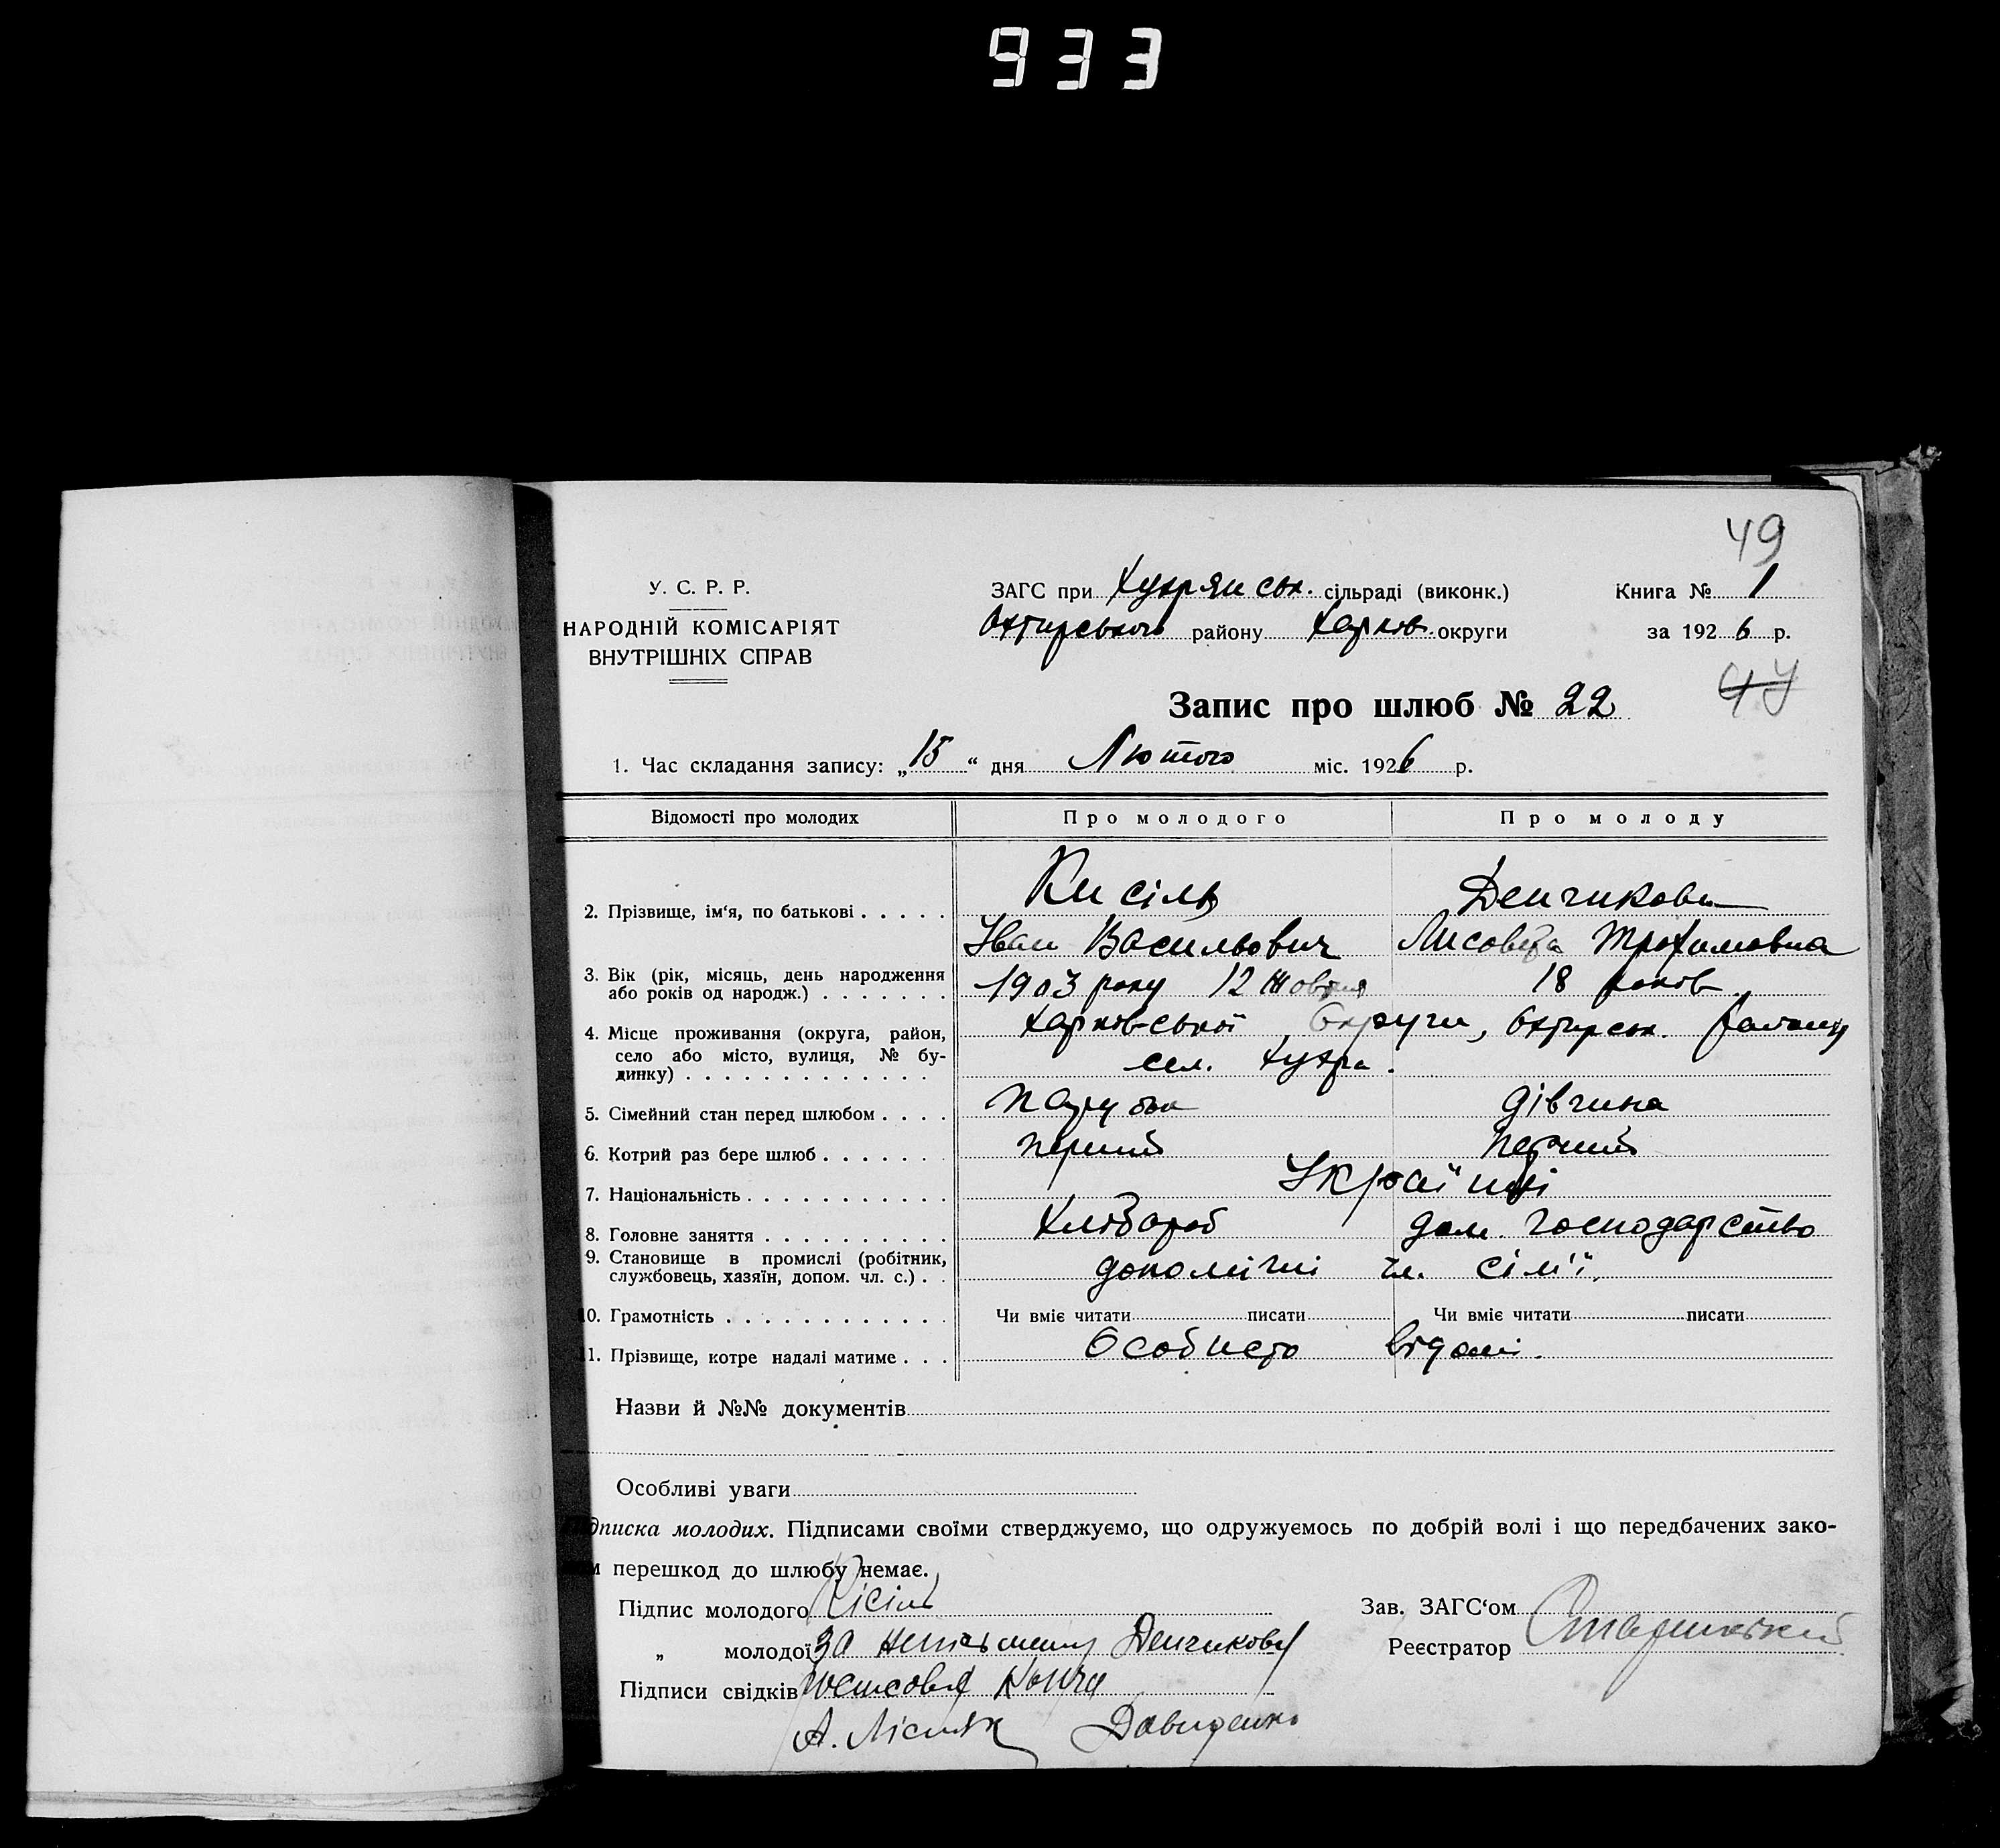 933
49
У. С. Р. Р.
НАРОДНІЙ КОМІСАРІЯТ
ВНУТРІШНІХ СПРАВ
ЗАГС при Хухрянськ. сільраді (виконк.)
Охтирського району Харков. округи
Книга № 1
за 1926 р.
44
Запис про шлюб № 22
1. Час складання запису: „15“ дня Лютого міс. 1926 р.
Відомості про молодих Про молодого Про молоду
2. Прізвище, ім‘я, по батькові . . . . . Кисіль Денчикова
Іван Васильович Лисовета Трофимовна
3. Вік (рік, місяць, день народження
або років од народж.) . . . . . . . 1903 року 12 Жовтня 18 років
4. Місце проживання (округа, район,
село або місто, вулиця, № бу-
динку) . . . . . . . . . . . . .
Харковської Округи, Охтирськ. району
сел. Хухра.
5. Сімейний стан перед шлюбом . . . . Парубок дівчина
6. Котрий раз бере шлюб . . . . . . . перший перший
7. Національність . . . . . . . . . . . Українці
8. Головне заняття . . . . . . . . . . Хлібороб дом. господарство
9. Становище в промислі (робітник,
службовець, хазяїн, допом. чл. с.) . . допомічні чл. сім'ї.
10. Грамотність . . . . . . . . . . . . Чи вміє читати писати Чи вміє читати писати
11. Прізвище, котре надалі матиме . . . Особисто відомі.
Назви й №№ документів
Особливі уваги
дписка молодих. Підписами своїми стверджуємо, що одружуємось по добрій волі і що передбачених зако-
м перешкод до шлюбу немає.
Підпис молодого Кісіль
„ молодої За неписьмену Денчикову
Підписи свідків
А. Лісняк Давиденко
Зав. ЗАГС‘ом
Реєстратор